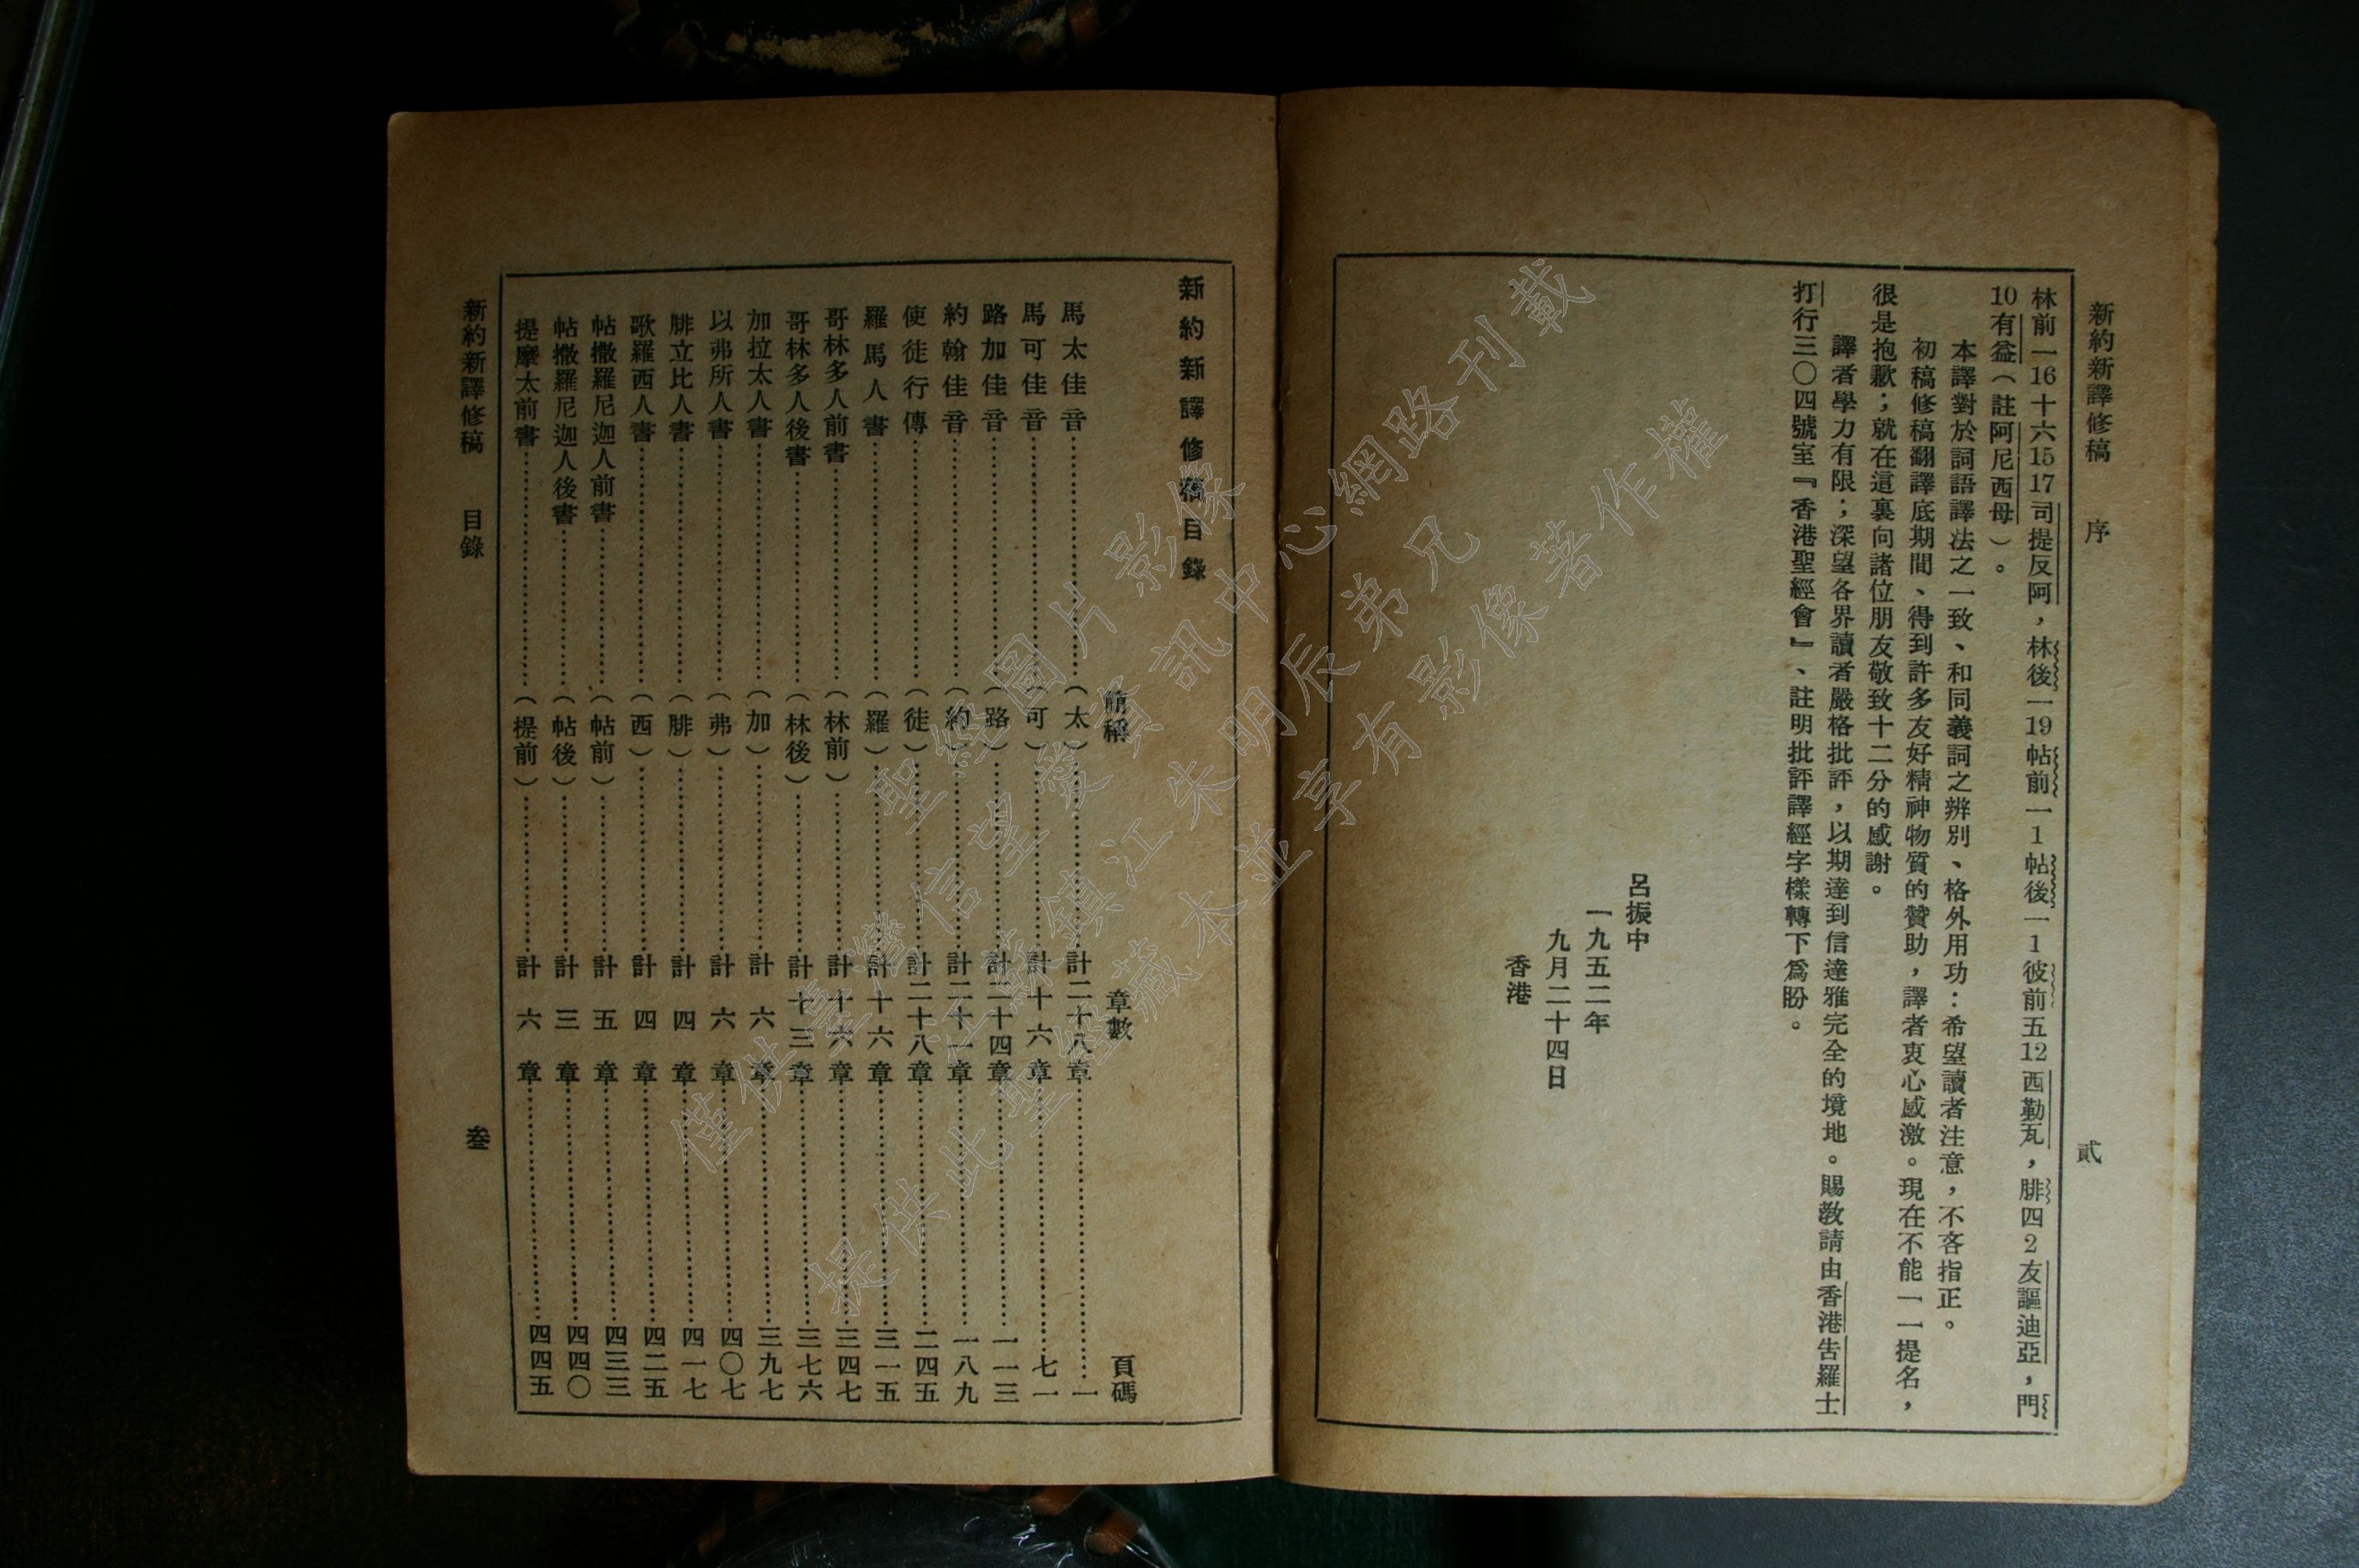 新約新譯修稿　序　貳
林前一16十六15 17司提反阿，林後一19帖前一1帖後一1彼前五12西勒瓦，腓四2友謳迪亞，門
10有益（註阿尼西母）。
本譯對於詞語譯法之一致、和同義詞之辨別、格外用功：希望讀者注意，不吝指正。
初稿修稿翻譯底期間、得到許多友好精神物質的贊助，譯者衷心感激。現在不能一一提名，
很是抱歉；就在這裏向諸位朋友敬致十二分的感謝。
譯者學力有限；深望各界讀者嚴格批評，以期達到信達雅完全的境地。賜教請由香港告羅士
打行三〇四號室『香港聖經會』、註明批評譯經字樣轉下爲盼。
呂振中
一九五二年
九月二十四日
香港
新約新譯修稿目錄
簡稱　章數　頁碼
馬太佳音（太）計二十八章一
馬可佳音（可）計十六章七一
路加佳音（路）計二十四章一一三
約翰佳音（約）計二十一章一八九
使徒行傳（徒）計二十八章二四五
羅馬人書（羅）計十六章三一五
哥林多人前書（林前）計十六章三四七
哥林多人後書（林後）計十三章三七六
加拉太人書（加）計六章三九七
以弗所人書（弗）計六章四〇七
腓立比人書（腓）計四章四一七
歌羅西人書（西）計四章四二五
帖撒羅尼迦人前書（帖前）計五章四三三
帖撒羅尼迦人後書（帖後）計三章四四〇
提摩太前書（提前）計六章四四五
新約新譯修稿　目錄　叁
聖經圖片影像
僅供臺灣信望愛資訊中心網路刊載
江蘇鎮江朱明辰弟兄
提供此聖經藏本並享有影像著作權